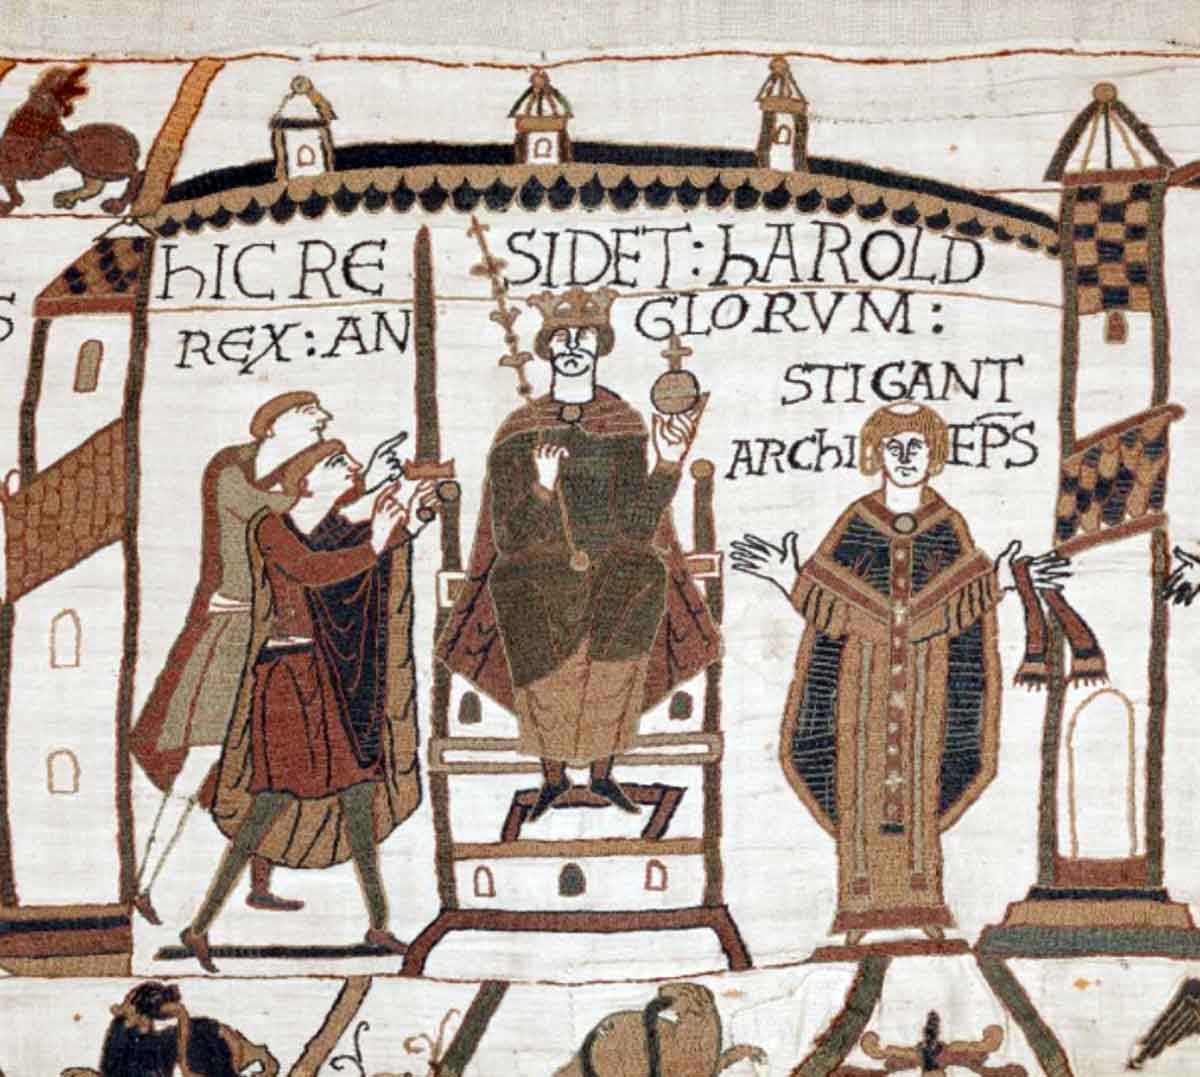 hIC RE SIDET : hAROLD
REX : AN GLORVM :
STIGANT
ARChI EP̅S
S